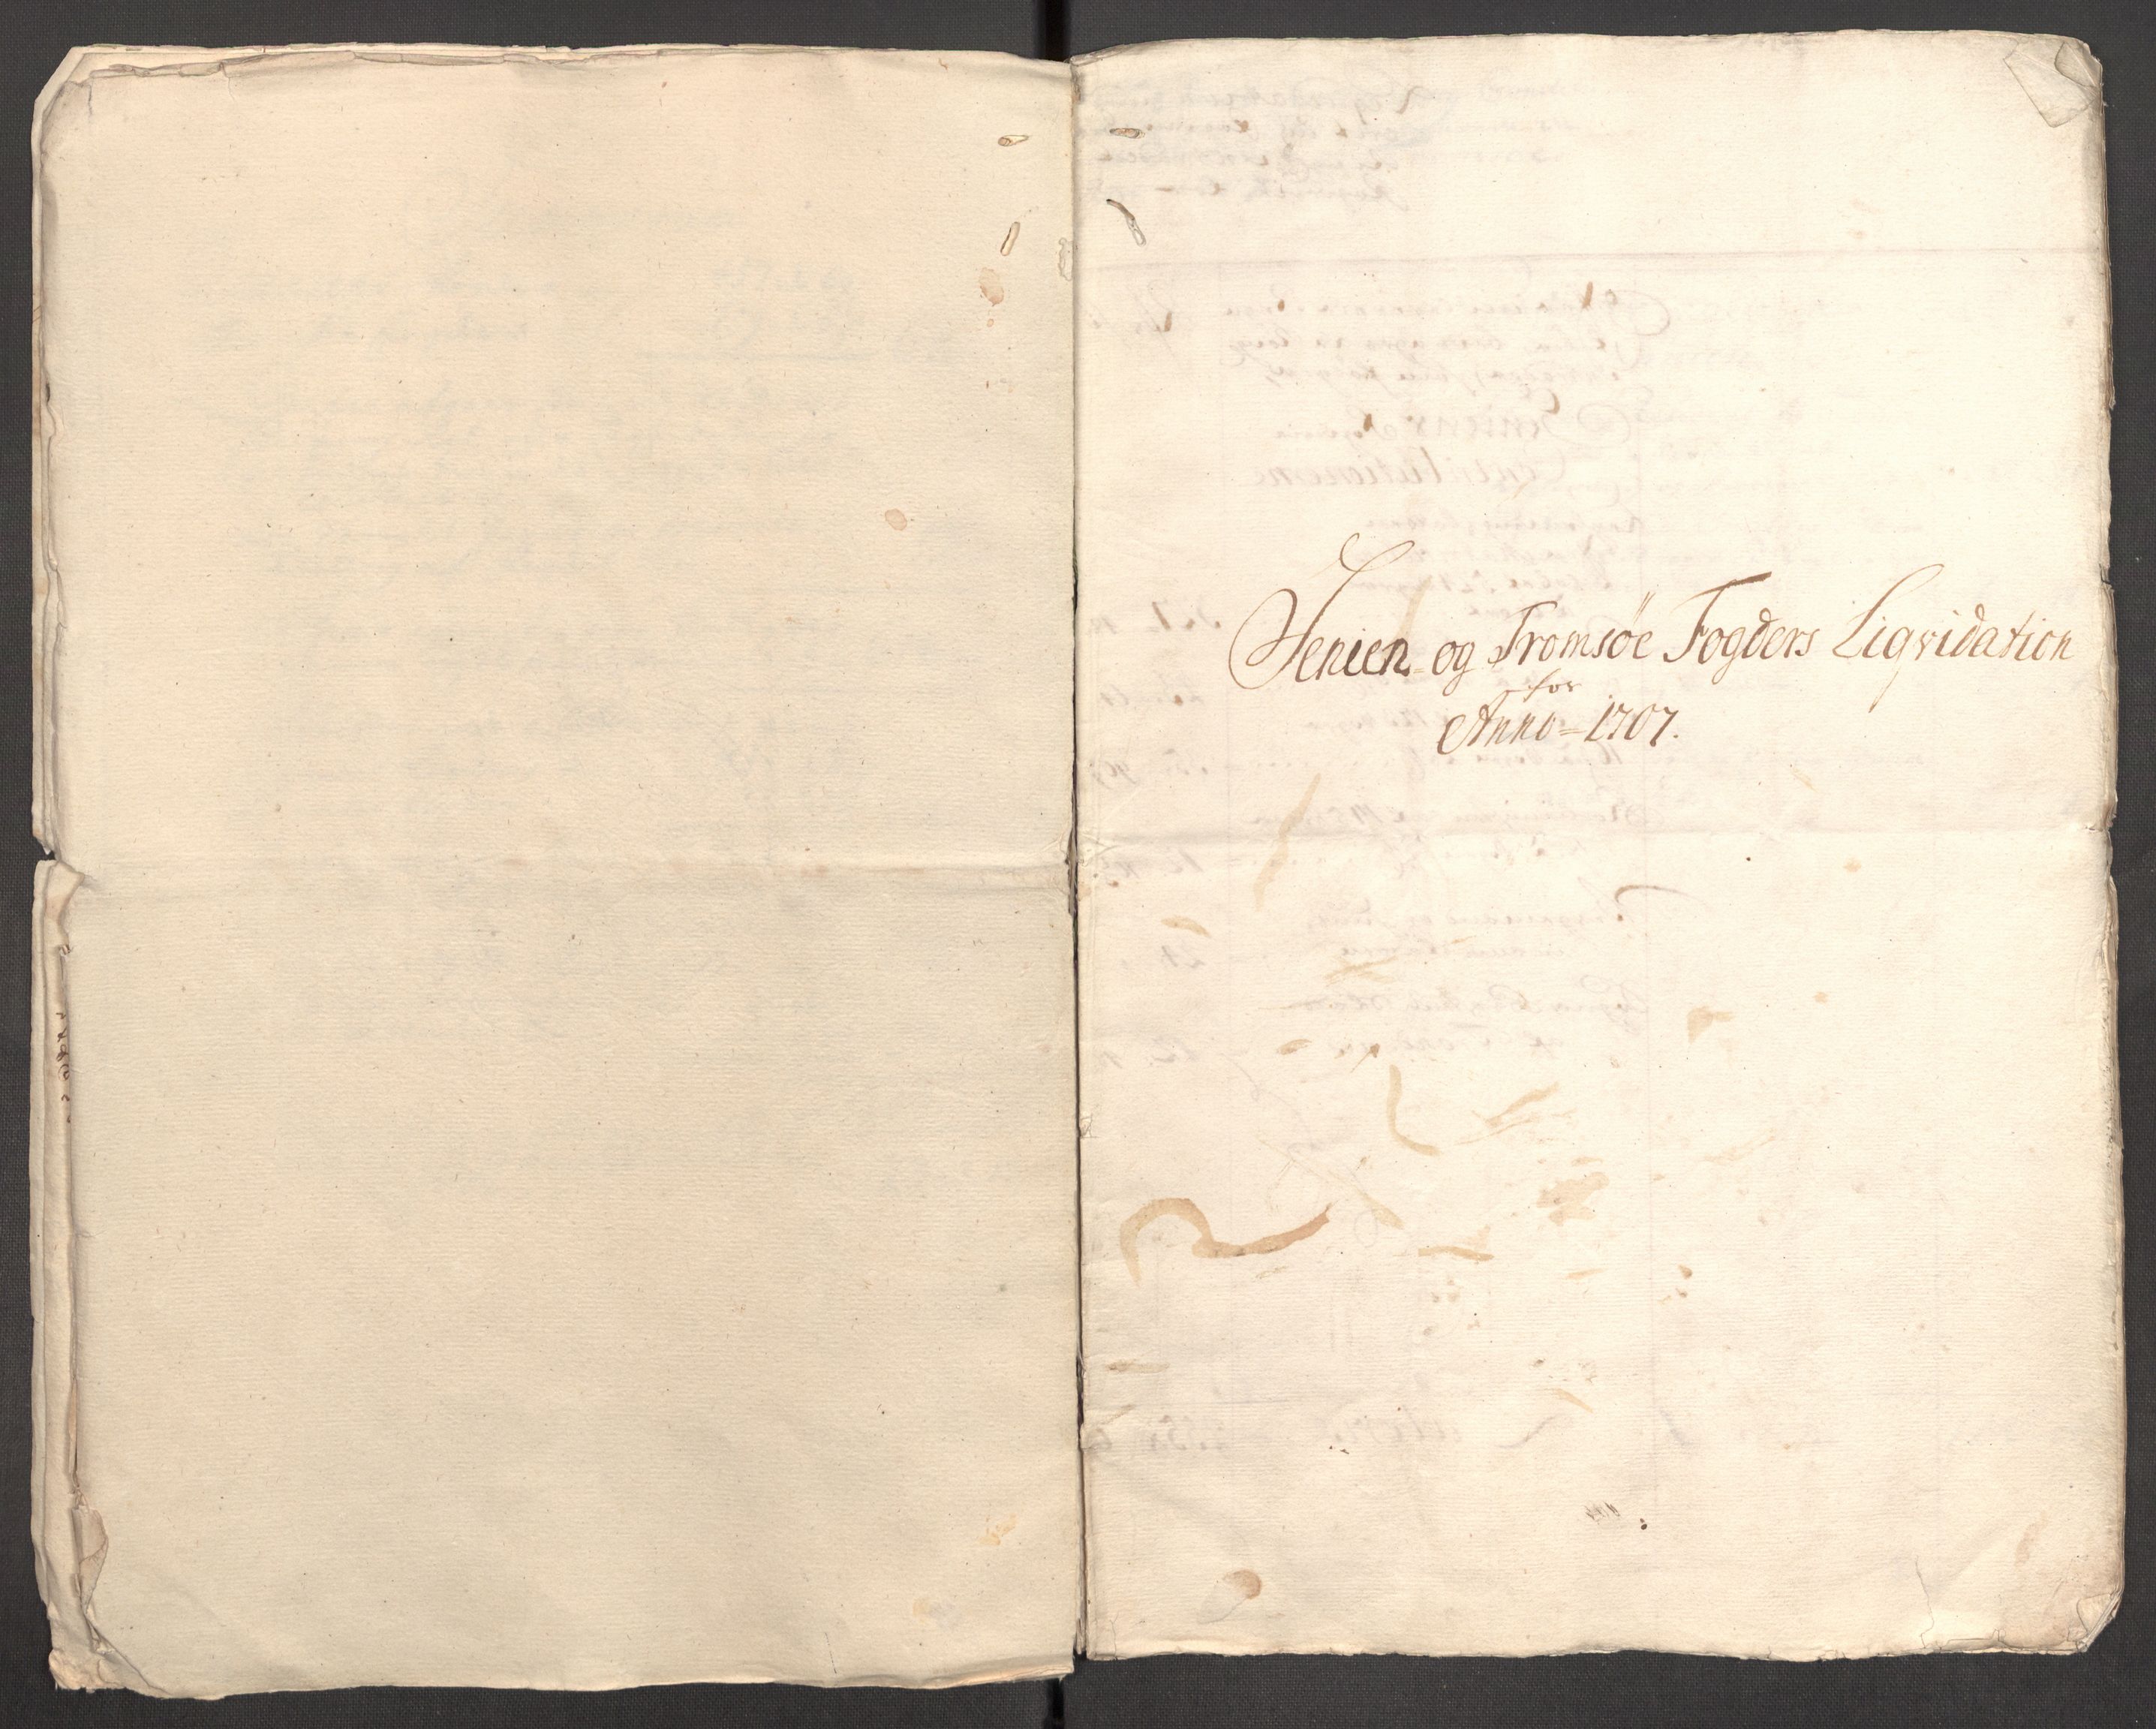 Senien og Tromsøe Fogders Liqvidation
for
Anno = 1707.